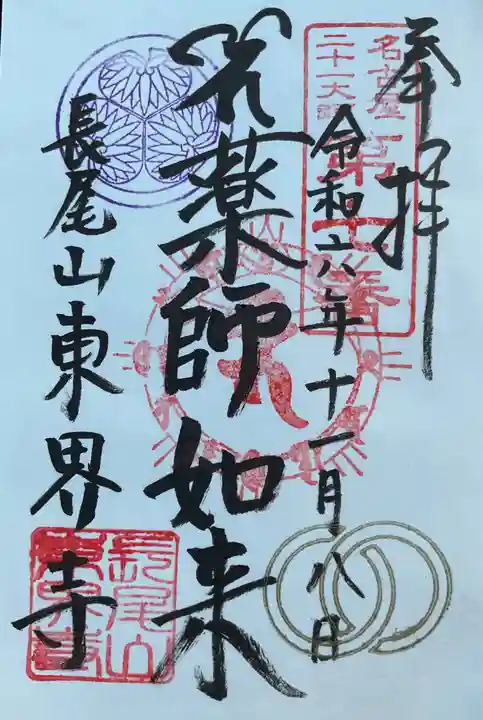 奉拝
名古屋
二十一大師
令和六年十一月八日
薬師如来
長尾山東界寺
長尾山
東界寺